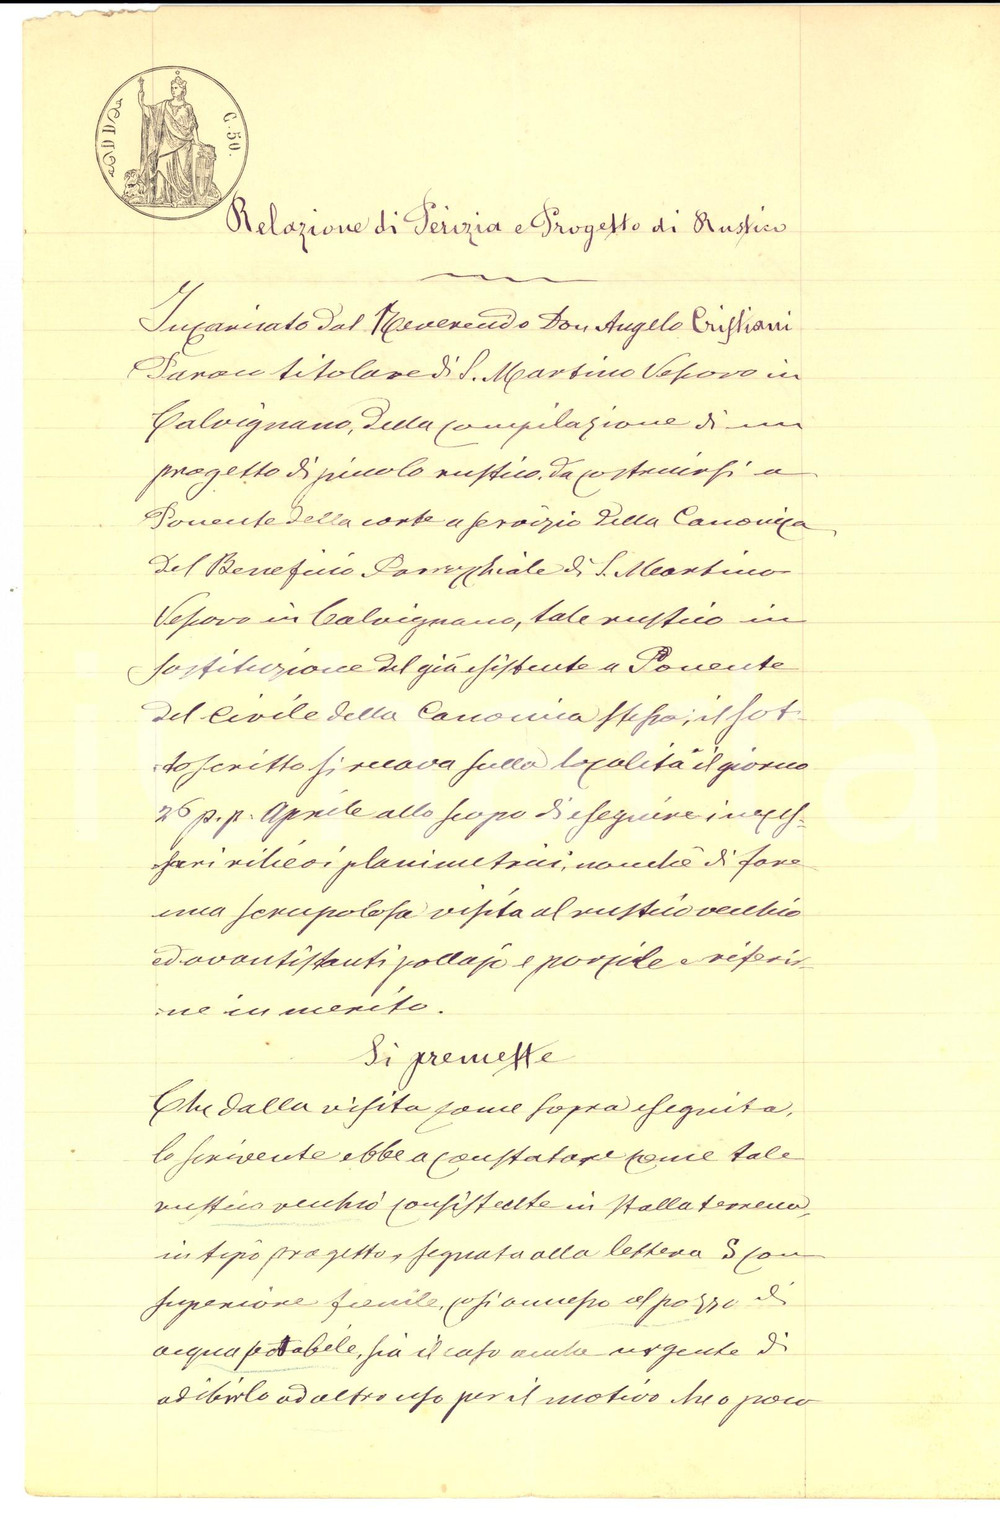 C. 50.
Relazione di Perizia e Progetto di Rustico
Incaricato dal Reverendo Don Angelo Cristiani
Paroco titolare di S. Martino Vescovo in
Calvignano, della compilazione di un
progetto di piccolo rustico da costruirsi a
Ponente della corte a servizio della Canonica
del Beneficio Parrocchiale di S. Martino
Vescovo in Calvignano, tale rustico in
sostituzione del già esistente a Ponente
del Civile della Canonica stessa; il sot-
toscritto si recava sulla località il giorno
26 p. p. Aprile allo scopo di eseguire i neces-
sari rilievi planimetrici, nonchè di fare
una scrupolosa visita al rustico vecchio
ed avantistanti pollajo e porcile e riferir-
ne in merito.
Si premette
Che dalla visita come sopra eseguita,
lo scrivente ebbe a constatare come tale
rustico vecchio consistente in stalla terrena,
in tipo progetto, segnata alla lettera S con
superiore fienile, così annesso al pozzo di
acqua potabile, sia il caso anche urgente di
adibirlo ad altro uso per il motivo che a poco